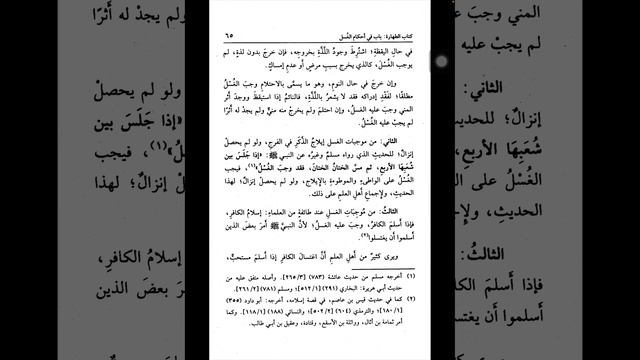 كتاب الطهارة: باب في أحكام الغسل ٦٥
في حال اليقظة؛ اشترط وجود اللَّذَّةِ بخروجه، فإن خرج بدون لذةٍ، لم
يوجب الغُسْلَ، كالذي يخرج بسببِ مرضٍ أو عدمِ إمساكٍ.
وإن خرج في حال النوم، وهو ما يسمَّى بالاحتلام وجبَ الغُسْلُ
مطلقًا؛ لفَقْدِ إدراكه فقد لا يشعُرُ باللَّذَّةِ، فالنائمُ إذا استيقظَ ووجدَ أثر
المني وجبَ عليه الغُسل، وإن احتلمَ ولم يخرج منه منيٌّ ولم يجدْ له أثرًا
لم يجب عليه الغُسلُ.
الثاني: من موجبات الغسل إيلاجُ الذَّكَرِ في الفرجِ، ولو لم يحصلْ
إنزالٌ؛ للحديثِ الذي رواه مسلمٌ وغيرُه عن النبي ﷺ: «إذا جَلَسَ بين
شُعَبِها الأربعِ، ثم مسَّ الختانُ الختانَ، فقد وجبَ الغُسْلُ»(١)، فيجب
الغُسْلُ على الواطىءِ والموطوءةِ بالإيلاجِ، ولو لم يحصلْ إنزالٌ؛ لهذا
الحديثِ، ولإجماعِ أهلِ العلمِ على ذلك.
الثالثُ: من مُوجِباتِ الغسلِ عند طائفةٍ من العلماءِ: إسلامُ الكافرِ،
فإذا أسلمَ الكافرُ، وجبَ عليه الغسلُ؛ لأنَّ النبيَّ ﷺ أمرَ بعضَ الذين
أسلموا أن يغتسلوا(٢).
ويرى كثيرٌ من أهلِ العلمِ أنَّ اغتسالَ الكافرِ إذا أسلمَ مستحبٌّ،
(١) أخرجه مسلم من حديث عائشة (٧٨٣) [٢/٢٦٥]. وأصله متفق عليه من
حديث أبي هريرة: البخاري (٢٩١) [١/٥١٢]؛ ومسلم (٧٨١) [٢/٢٦١].
(٢) كما في حديث قيس بن عاصم، في قصة إسلامه، أخرجه: أبو داود (٣٥٥)
[١/١٨٠]؛ والترمذي (٦٠٤) [٢/٥٠٢]؛ والنسائي (١٨٨) [١/١١٨]. وكما
أمر ثمامة بن أثال، وواثلة بن الأسقع، وقتادة، وعقيل بن أبي طالب.